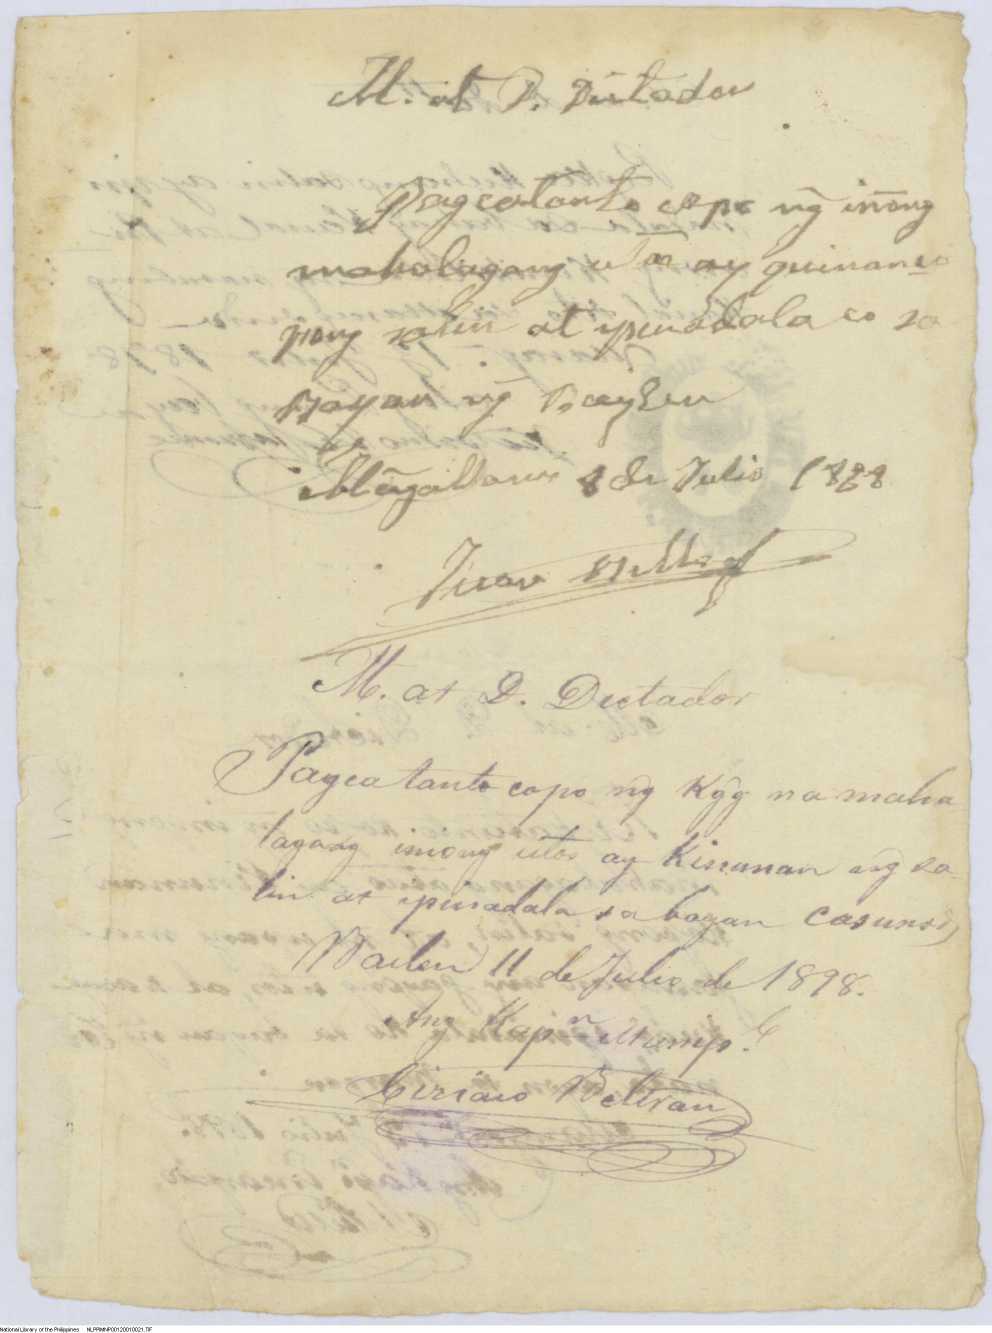 M. at D. Dictador
Pagcatanto copo ng̃ inyong
mahalagang uos ay quinanan co
pong salin at ypinadala co sa
Bayan ng̃ Baylen
Magallanes 8 de Julio 1898
Juan Bello
M. at D. Dictador
Pagca tanto copo ng̃ Kgg na maha
lagang inong utos ay Kinunan ng̃ sa
lin at ypinadala sa bayan casunod,
Bailen 11 de Julio de 1898.
Ang Kapn Munipl
Ciriaco Beltran
National Library of the Philippines NLPPIMNP00120010021.TIF